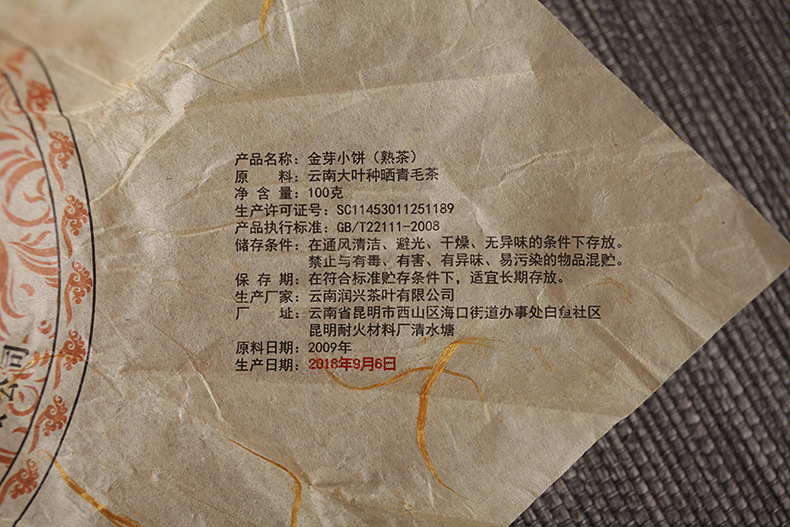 产品名称：金芽小饼（熟茶）
原 料：云南大叶种晒青毛茶
净 含 量：100克
生产许可证号：SC11453011251189
产品执行标准：GB/T22111-2008
储存条件：在通风清洁、避光、干燥、无异味的条件下存放。
禁止与有毒、有害、有异味、易污染的物品混贮。
保 存 期：在符合标准贮存条件下，适宜长期存放。
生产厂家：云南润兴茶叶有限公司
厂 址：云南省昆明市西山区海口街道办事处白鱼社区
昆明耐火材料厂清水塘
原料日期：2009年
生产日期：2018年9月6日
公司